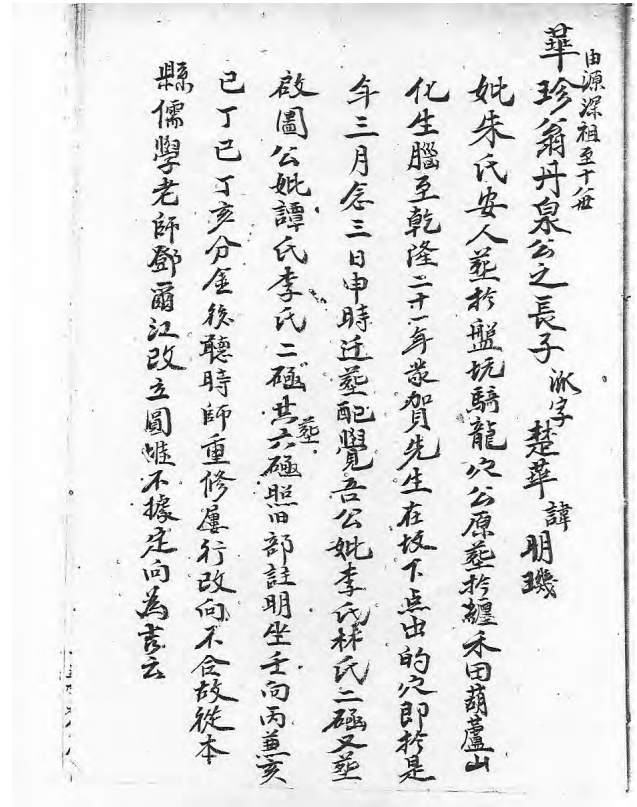 由源深祖至十世
華珍翁丹泉公之長子 派字楚華 諱明璣
妣朱氏安人葬扵盤坑騎龍穴公原葬扵纏禾田葫蘆山
化生腦至乾隆二十一年蒙賀先生在坟下点出的穴即扵是
年三月念三日申時迁葬配覺吾公妣李氏林氏二礄又葬
啟圖公妣譚氏李氏二礄共葬六礄照旧部註明坐壬向丙兼亥
巳丁巳丁亥分金後聽時師重修屢行改向不合故從本
縣儒學老師鄧爾江改立圓堆不據定向為吉云